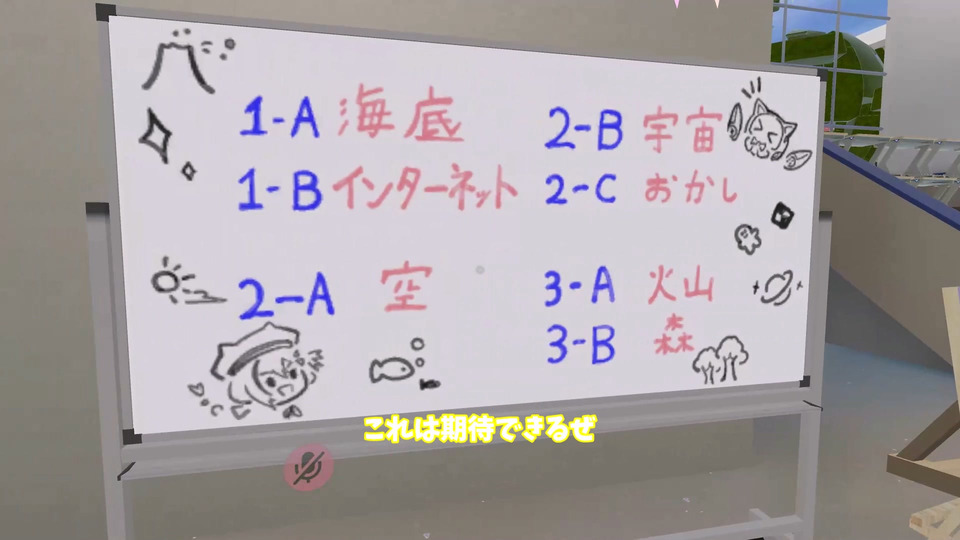 1-A 海底
1-B インターネット
2-A 空
2-B 宇宙
2-C おかし
3-A 火山
3-B 森
これは期待できるぜ